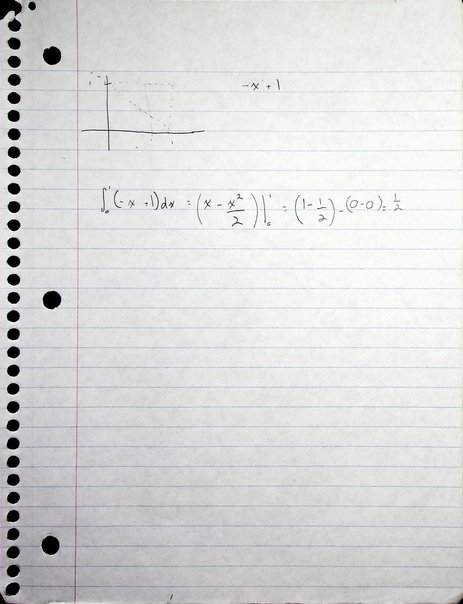 1
-x + 1
1
∫₀¹ (-x + 1)dx = (x - x²/2)|₀¹ = (1 - 1/2) - (0-0) = 1/2